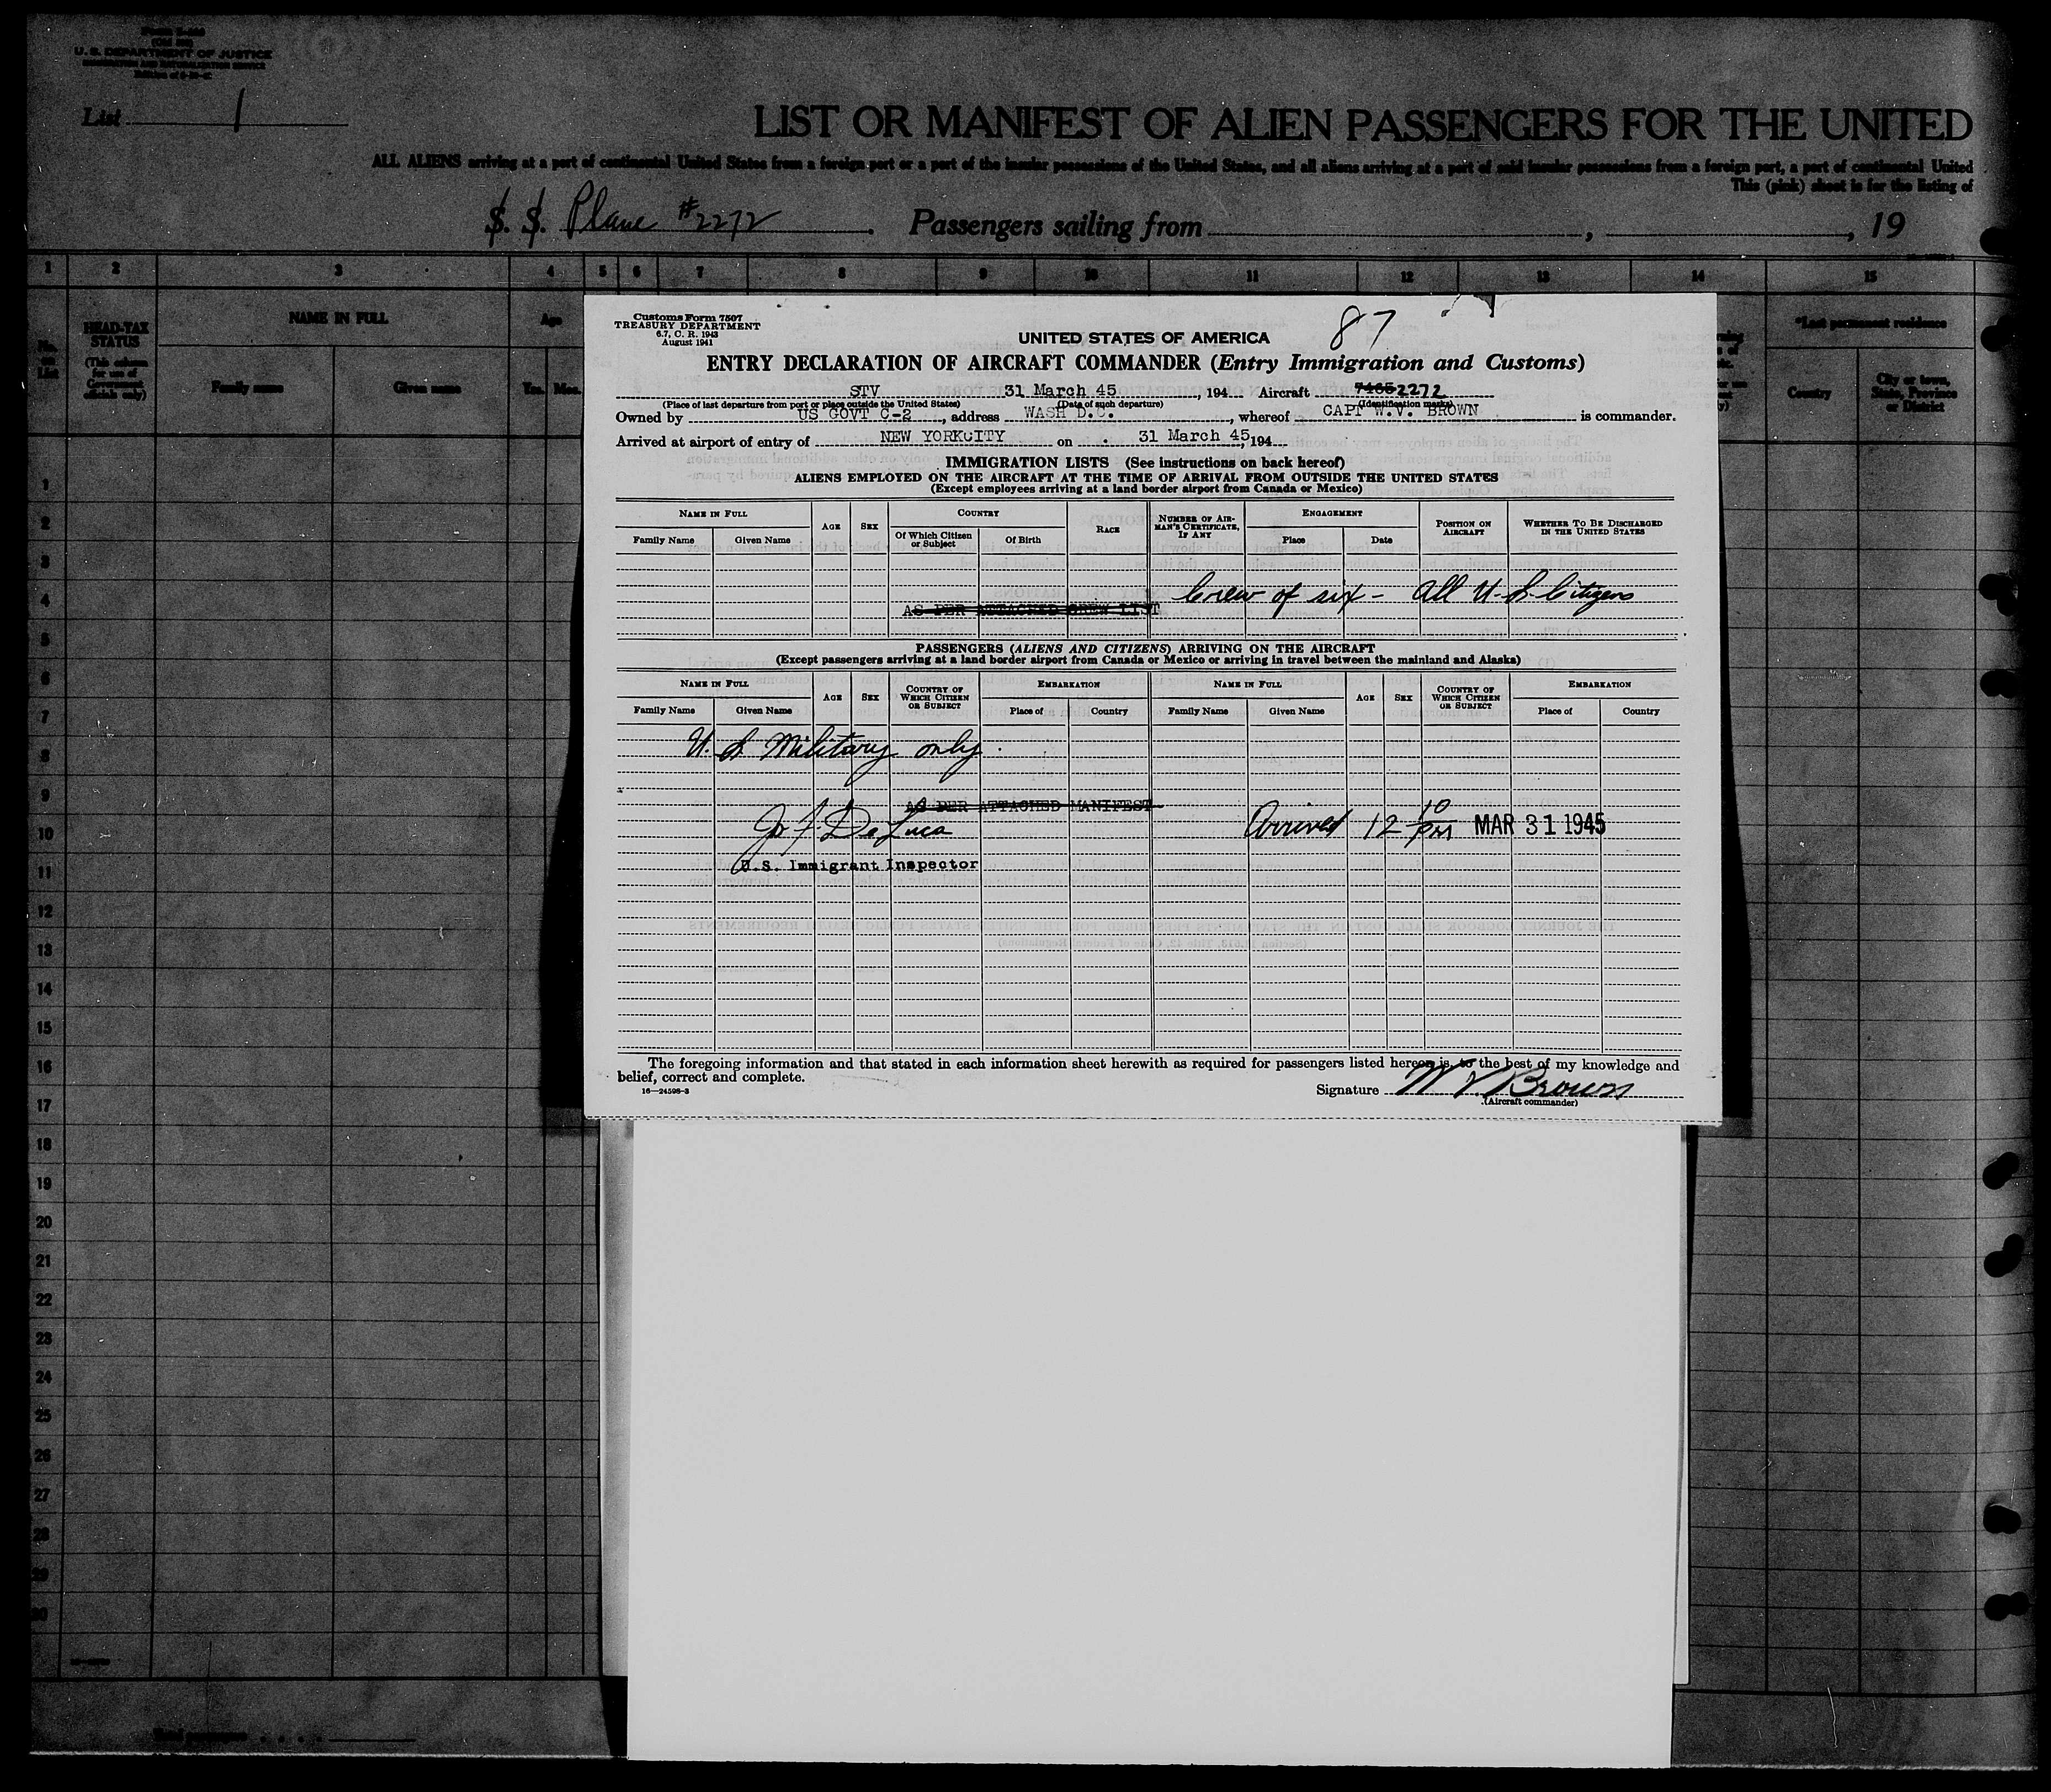 U. S. DEPARTMENT OF JUSTICE
IMMIGRATION AND NATURALIZATION SERVICE
List 1
LIST OR MANIFEST OF ALIEN PASSENGERS FOR THE UNITED
ALL ALIENS arriving at a port of continental United States from a foreign port or a port of the insular possessions of the United States, and all aliens arriving at a port of said insular possessions from a foreign port, a port of continental United
This (pink) sheet is for the listing of
S. S. Plane #2272. Passengers sailing from , , 19
1 2 3 4 5 6 7 8 9 10 11 12 13 14 15
No. on List
HEAD-TAX STATUS
(This column for use of Government officials only)
NAME IN FULL
Family name Given name
Age
Yrs. Mos.
*Last permanent residence
Country City or town, State, Province or District
1
2
3
4
5
6
7
8
9
10
11
12
13
14
15
16
17
18
19
20
21
22
23
24
25
26
27
28
29
30
Customs Form 7507
TREASURY DEPARTMENT
6.7, C. R. 1943
August 1941
87
UNITED STATES OF AMERICA
ENTRY DECLARATION OF AIRCRAFT COMMANDER (Entry Immigration and Customs)
STV 31 March 45, 194 Aircraft 7465 2272
(Place of last departure from port or place outside the United States) (Date of such departure) (Identification marks)
Owned by US GOVT C-2, address WASH D.C., whereof CAPT W.V. BROWN is commander.
Arrived at airport of entry of NEW YORK CITY on 31 March 45, 194
IMMIGRATION LISTS (See instructions on back hereof)
ALIENS EMPLOYED ON THE AIRCRAFT AT THE TIME OF ARRIVAL FROM OUTSIDE THE UNITED STATES
(Except employees arriving at a land border airport from Canada or Mexico)
NAME IN FULL AGE SEX COUNTRY RACE NUMBER OF AIRMAN'S CERTIFICATE, IF ANY ENGAGEMENT POSITION ON AIRCRAFT WHETHER TO BE DISCHARGED IN THE UNITED STATES
Family Name Given Name Of Which Citizen or Subject Of Birth Place Date
Crew of six - All U.S. Citizens
AS PER ATTACHED CREW LIST
PASSENGERS (ALIENS AND CITIZENS) ARRIVING ON THE AIRCRAFT
(Except passengers arriving at a land border airport from Canada or Mexico or arriving in travel between the mainland and Alaska)
NAME IN FULL AGE SEX COUNTRY OF WHICH CITIZEN OR SUBJECT EMBARKATION NAME IN FULL AGE SEX COUNTRY OF WHICH CITIZEN OR SUBJECT EMBARKATION
Family Name Given Name Place of Country Family Name Given Name Place of Country
U. S. Military only.
AS PER ATTACHED MANIFEST
F. De Luca Arrived 12 10 PM MAR 31 1945
U.S. Immigrant Inspector
The foregoing information and that stated in each information sheet herewith as required for passengers listed hereon is, to the best of my knowledge and
belief, correct and complete.
16—24598-3
Signature W V Brown
(Aircraft commander)